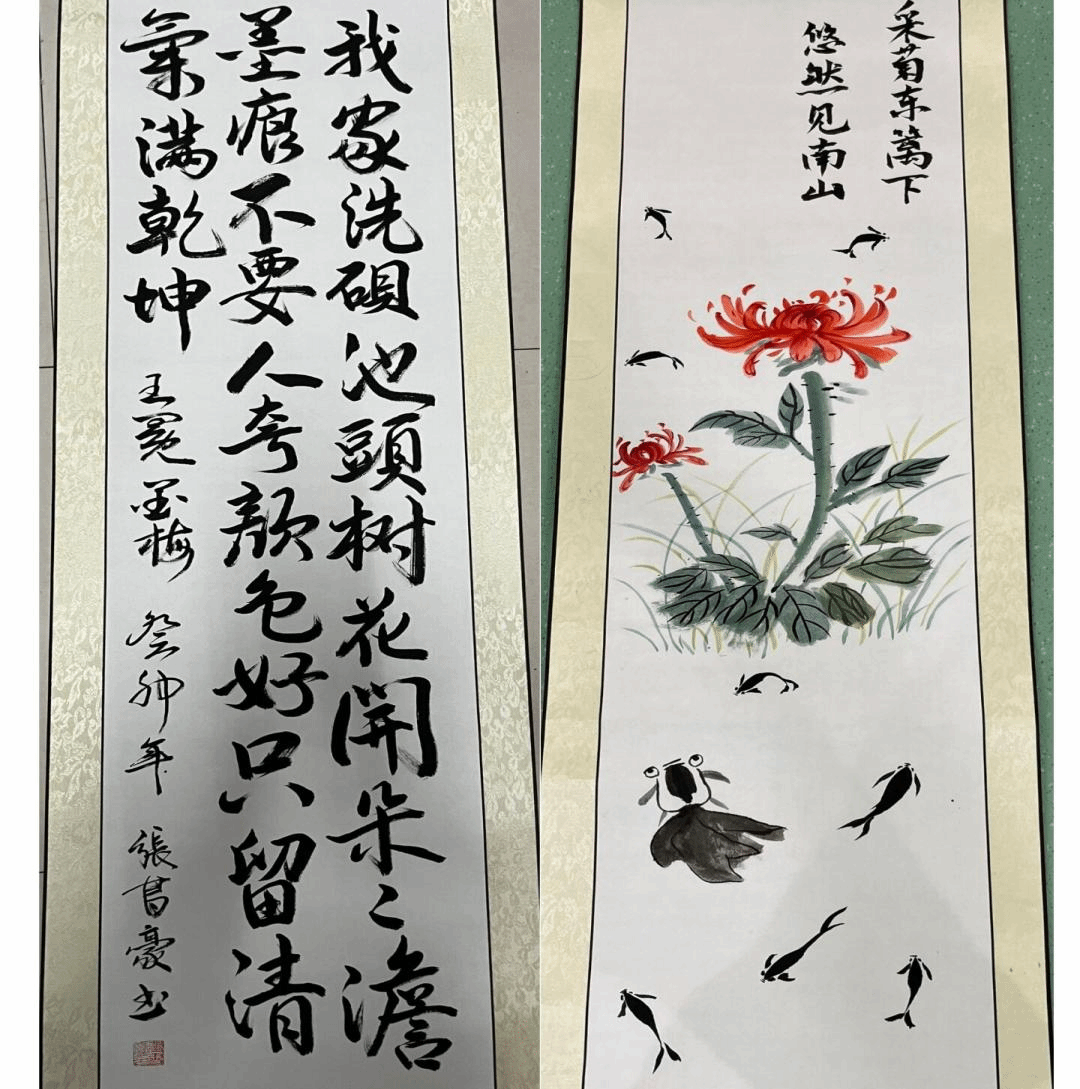 我家洗硯池頭树花開朵〻澹
墨痕不要人夸颜色好只留清
氣满乾坤 王冕墨梅 癸卯年 張書豪书
采菊东篱下
悠然见南山